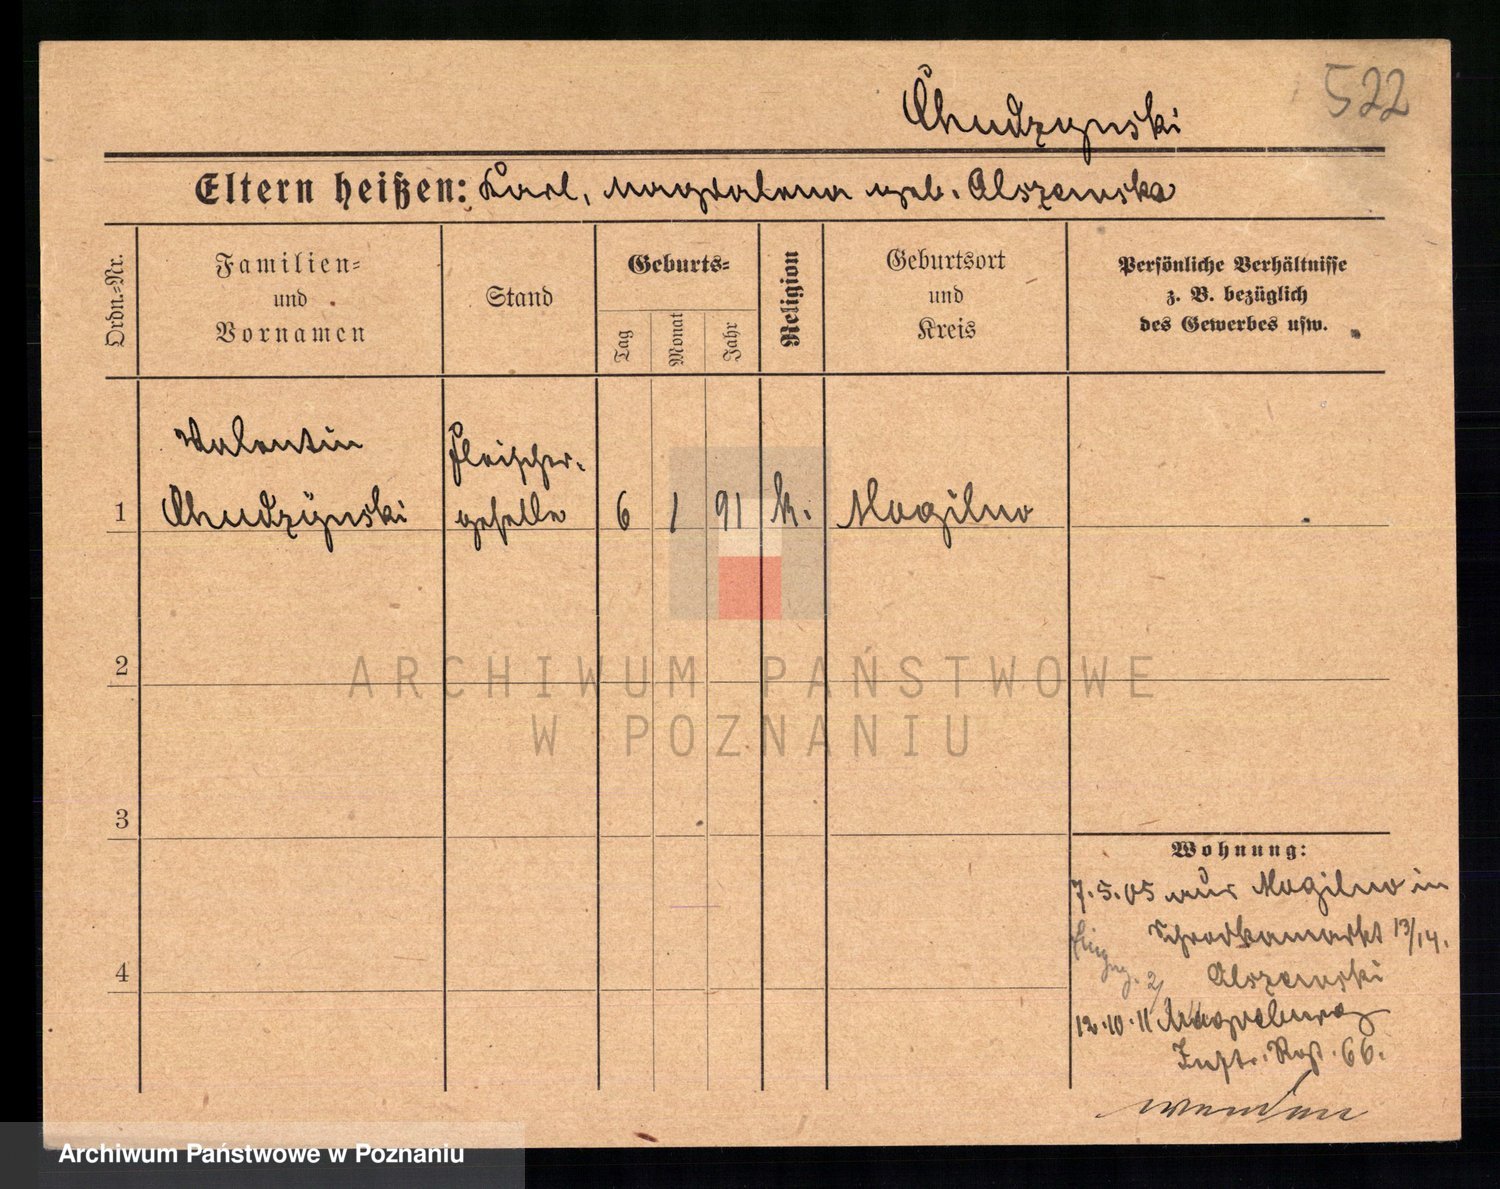 522
Chudzynski
Eltern heißen: Karl, Magdalena geb. Olszewska
Ordn.-Nr.
Familien-
und
Vornamen
Stand
Geburts-
Tag
Monat
Jahr
Religion
Geburtsort
und
Kreis
Persönliche Verhältnisse
z. B. bezüglich
des Gewerbes usw.
Valentin
Fleischer-
1 Chudzynski geselle 6 1 91 k. Mogilno
2
3
4
Wohnung:
7.5.05 aus Mogilno in
Schrodkamarkt 13/14.
Olszewski
12.10.11 Magdeburg
Inftr. Rgt. 66.
wenden
ARCHIWUM PAŃSTWOWE
W POZNANIU
Archiwum Państwowe w Poznaniu